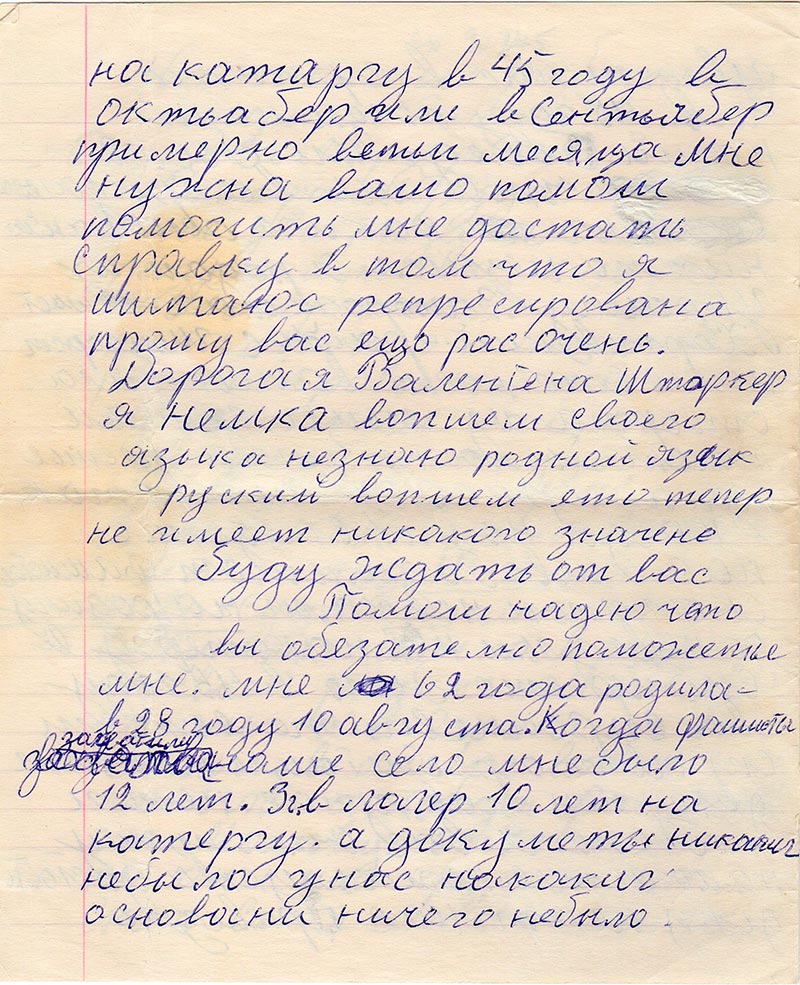 на катаргу в 45 году в
октьабер или в Сентьябер
примерно
месяца мне
нужна вашо помош
помогить мне достать
справку в том что я
шитаюс репресирована
прошу вас ещо рас очень.
Дорогая Валентена Штаркер
я немка вопшем своего
языка незнаю родной язык
руский вопшем ято тепер
не имеет никакого значено
буду ждать от вас
Помош надею что
вы обезателно поможетье
мне. мне 62 года родила-
в 28 году 10 августа. Когда фашисты
захватили
наше село мне было
12 лет. в лагер 10 лет на
катергу. а докуметы никаких
небыло унас накаких
основани ничего небыло.